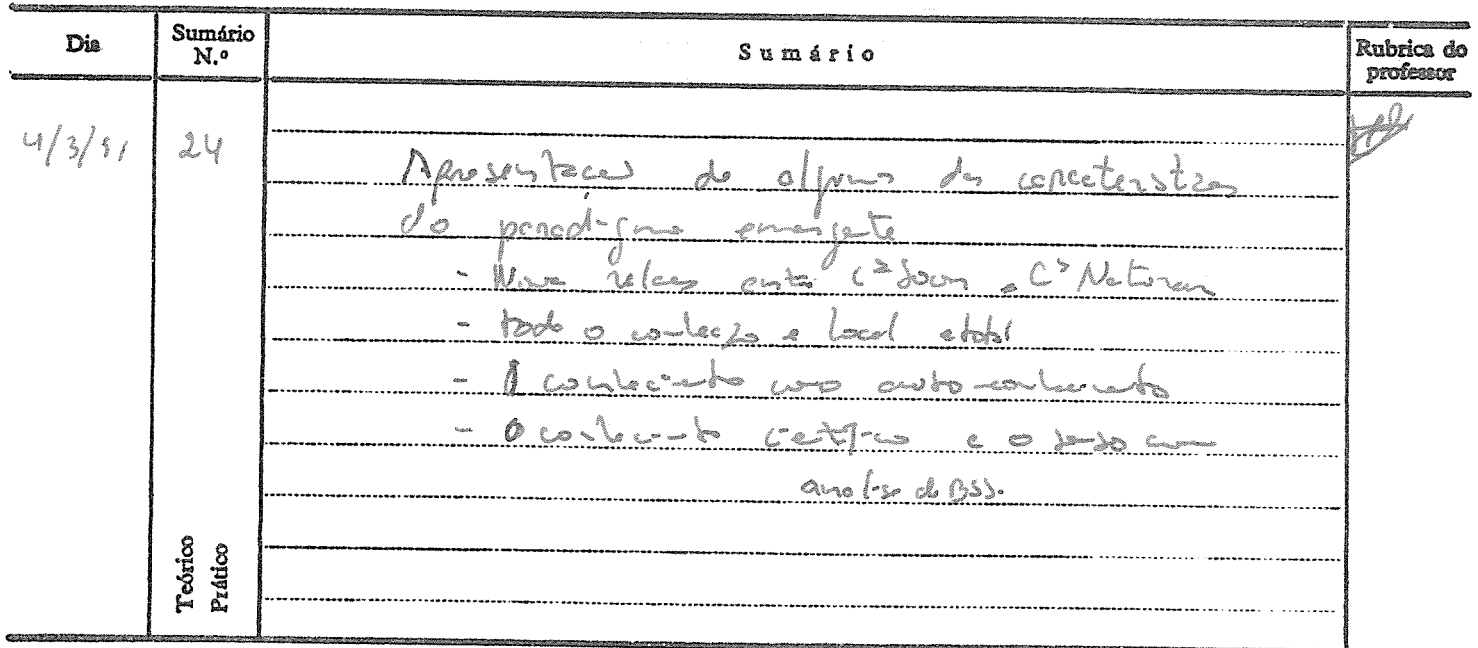 Dia Sumário N.º Sumário Rubrica do professor
4/3/91 24
Apresentação de algumas das características
do paradigma emergente
- Nova relação entre Cªs Sociais e Cªs Naturais
- todo o conhecimento é local e total
- O conhecimento como auto-conhecimento
- O conhecimento científico e o senso comum
análise de BSS.
Teórico
Prático